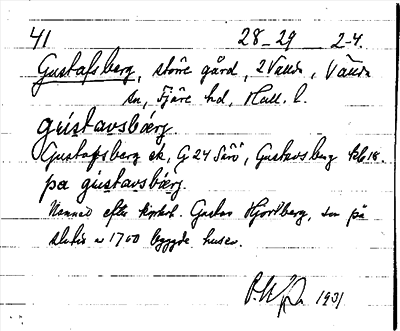 41 28-29 2-4.
Gustafsberg, större gård, 2 Vallda, Vallda
sn, Fjäre hd, Hall. l.
gústavsbærg.
Gustafsberg ek, G 24 Särö, Gustavsberg
pa gústavsbærg.
Namnad efter kyrkoh. Gustav Hjortberg, som på
slutet a 1700 byggde huset.
1931